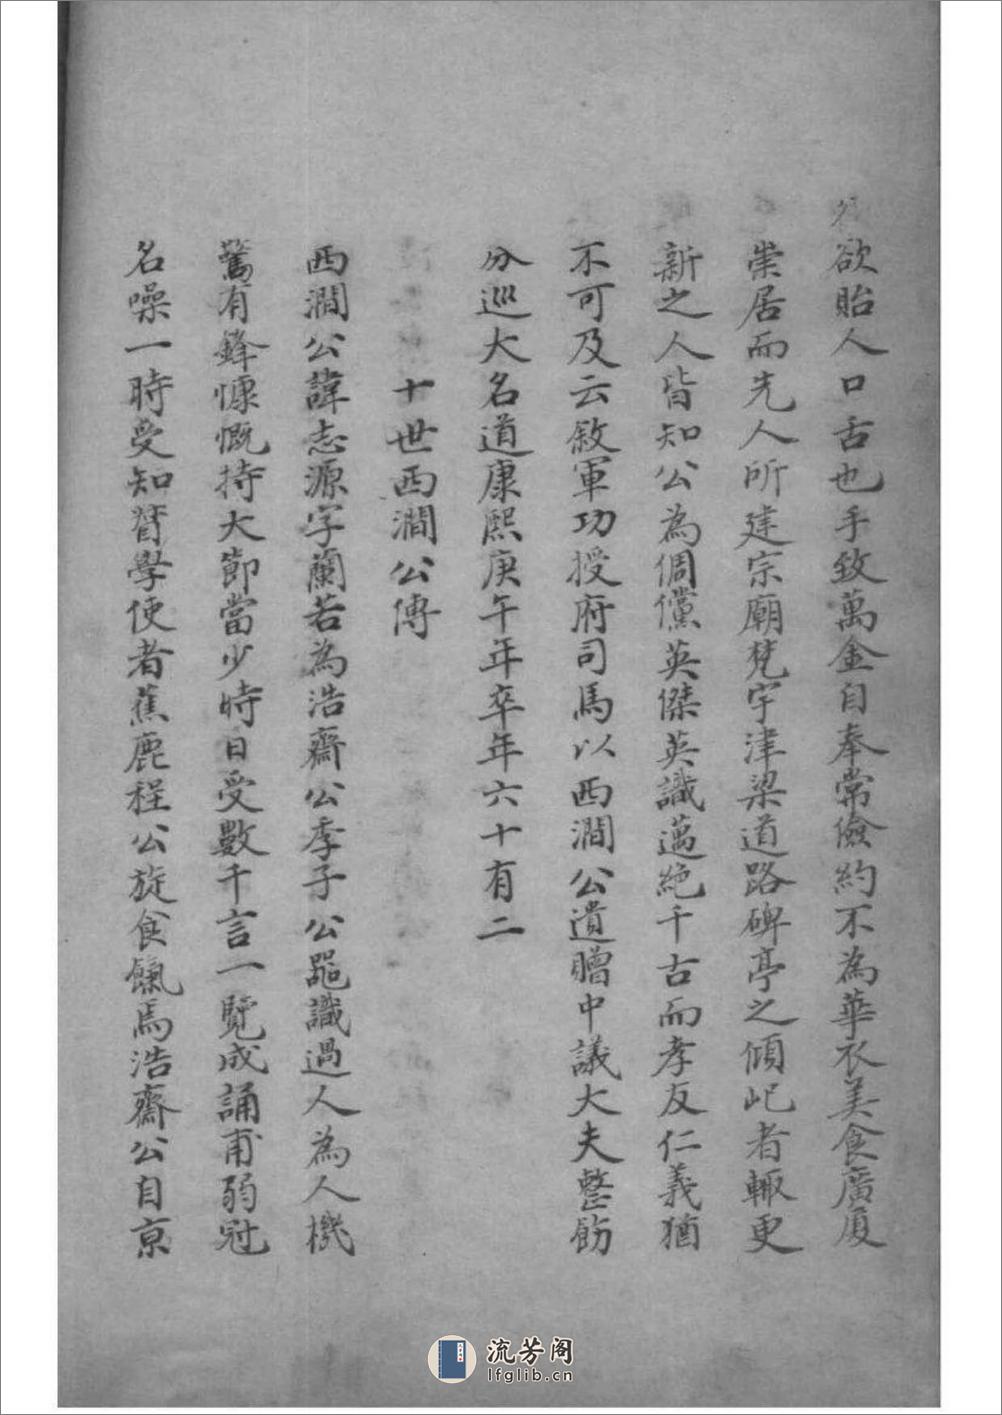 欲貽人口舌也手致萬金自奉常儉約不為華衣美食廣厦
崇居而先人所建宗廟梵宇津梁道路碑亭之傾圮者輙更
新之人皆知公為倜儻英傑英識邁絶千古而孝友仁義猶
不可及云敘軍功授府司馬以西澗公遺贈中議大夫整飭
分巡大名道康熙庚午年卒年六十有二
十世西澗公傳
西澗公諱志源字蘭若為浩齋公季子公器識過人為人機
驚有鋒慷慨持大節當少時日受數千言一覽成誦甫弱冠
名噪一時受知督學使者蕉鹿程公旋食餼焉浩齋公自京
流芳阁
lfglib.cn